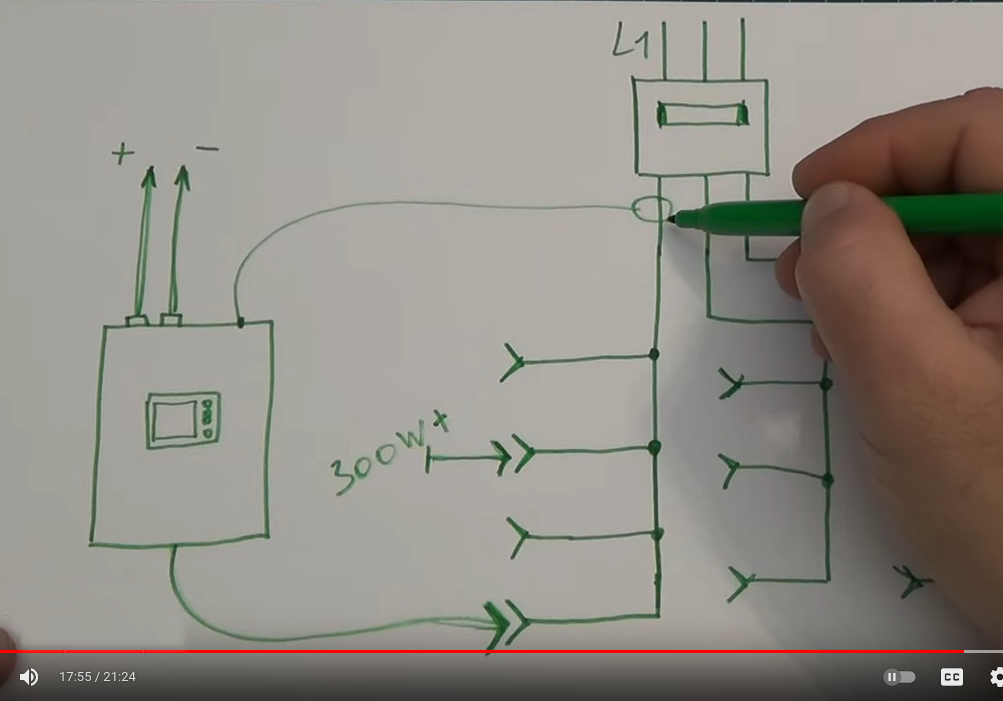 L1
+ −
300W+
17:55 / 21:24
CC